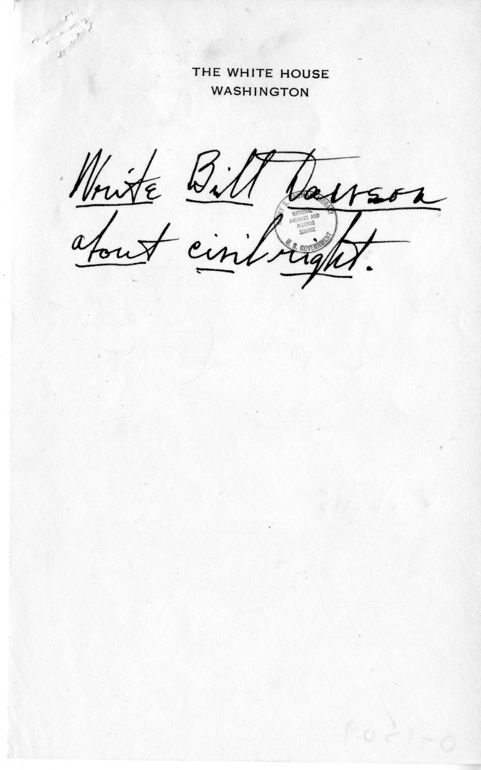 THE WHITE HOUSE
WASHINGTON
Write Bill Dawson
about civil right.
NATIONAL
ARCHIVES AND
RECORDS
SERVICE
U. S. GOVERNMENT